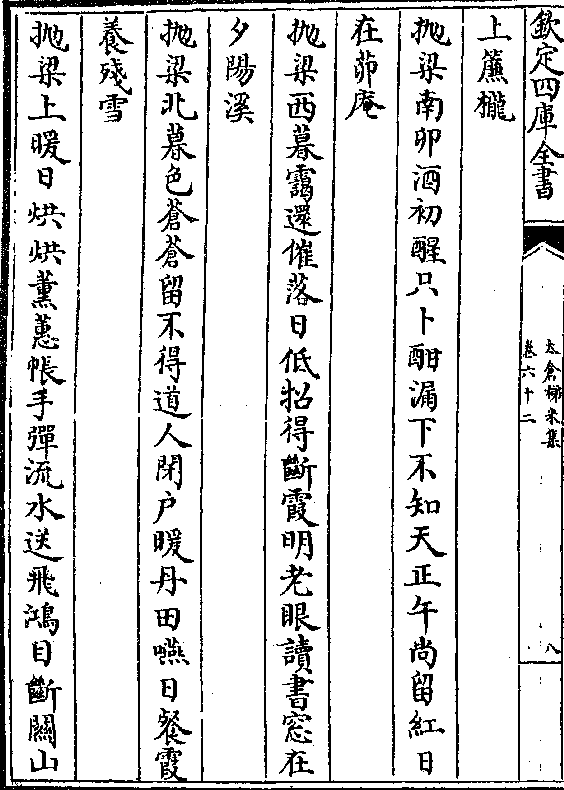 欽定四庫全書
太倉稊米集
卷六十二
八
上簾櫳
拋梁南卯酒初醒只卜酣漏下不知天正午尚留紅日
在茆庵
拋梁西暮靄還催落日低招得斷霞明老眼讀書窓在
夕陽溪
拋梁北暮色蒼蒼留不得道人閉户暖丹田嚥日餐霞
養殘雪
拋梁上暖日烘烘薰蕙帳手彈流水送飛鴻目斷關山